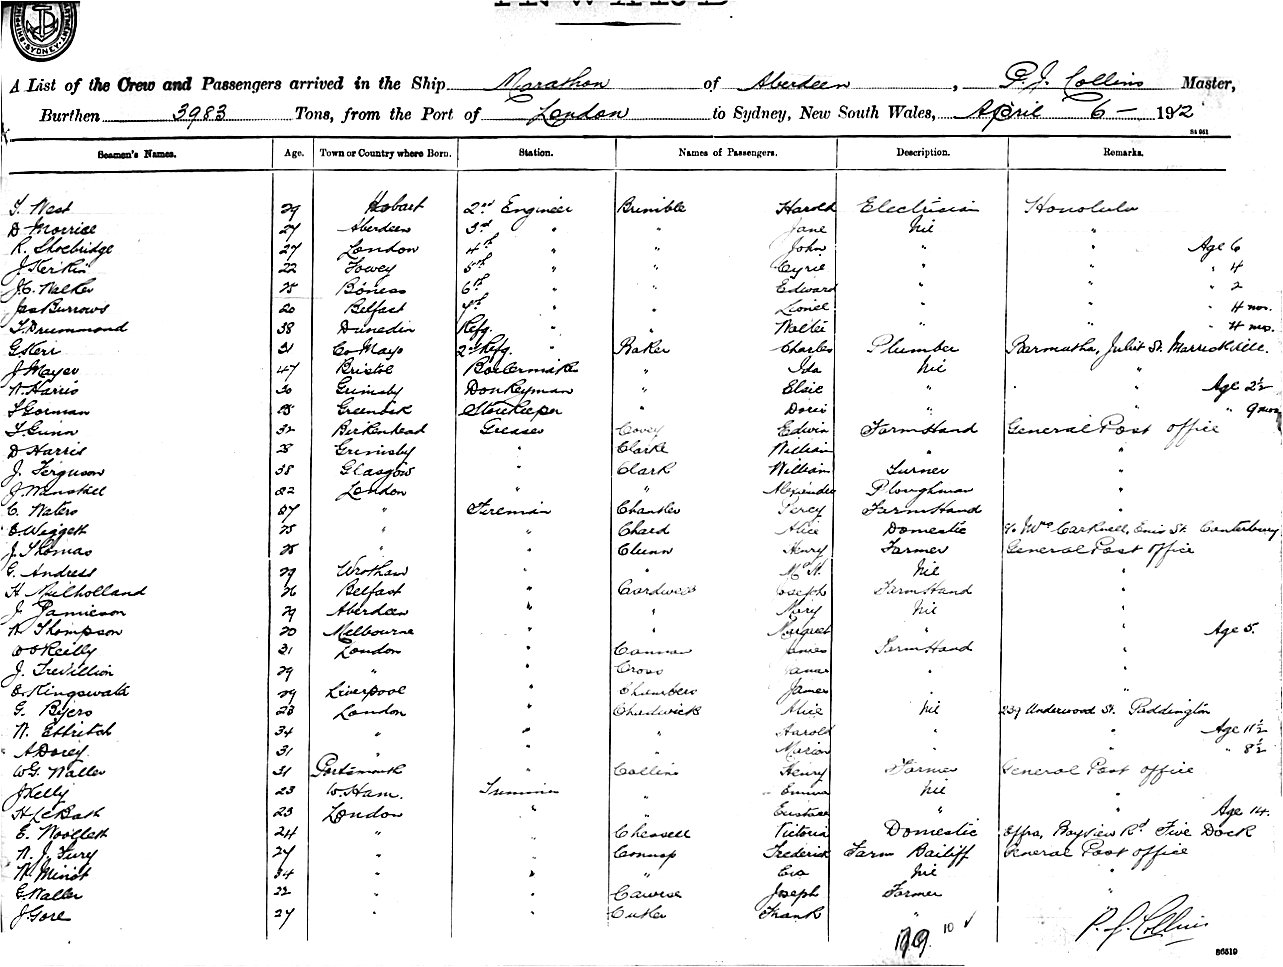 INWARD
SHIPPING SYDNEY
A List of the Crew and Passengers arrived in the Ship Marathon of Aberdeen, P. J. Collins Master,
Burthen 3983 Tons, from the Port of London to Sydney, New South Wales, April 6 - 1912
Seamen's Names. Age. Town or Country where Born. Station. Names of Passengers. Description. Remarks.
T. West 29 Hobart 2nd Engineer Brimble Harold Electrician Honolulu
D Morrice 27 Aberdeen 3rd " " Jane Nil "
R. Shoebridge 27 London 4th " " John " " Age 6
J Kerkin 22 Fowey 5th " " Cyril " " " 4
J.C. Walker 25 Boness 6th " " Edward " " " 2
Jas Burrows 20 Belfast 7th " " Lionel " " " 4 mos.
T. Drummond 38 Dunedin Refg. " " Walter " " " 4 mos.
G Kerr 31 Co Mayo 2nd Refg. " Baker Charles Plumber Bermutha, Juliet St. Marrickville.
J Mayer 47 Bristol Boilermaker " Ida Nil "
W Harris 30 Grimsby Donkeyman " Elsie " " Age 2½
T Gorman Storekeeper " Doris " " 9 mos
T. Gunn 32 Birkenhead Greaser Covey Edwin Farm Hand General Post office
D Harris 28 Grimsby " Clarke William " "
J. Ferguson 38 Glasgow " Clark William Turner "
J Winskill London " " Alexander Ploughman "
C. Waters " Fireman Chantler Percy Farm Hand "
E. Weggett 25 " " Chard Alice Domestic c/o Mrs Carknell, St. Canterbury
J. Thomas 25 " " Clunn Henry Farmer General Post office
G. Andress 29 Wrotham " " Nil "
H Mulholland 26 Belfast " Cardwell Joseph Farm Hand "
J. Jamieson 29 Aberdeen " " Mary Nil "
W Thompson 20 Melbourne " " Margaret " " Age 5.
O'Reilly 31 London " Cannan James Farm Hand "
J. Trevillion 29 " " Cross James " "
E. Kingswald 29 Liverpool " Chambers James " "
G. Byers 23 London " Chadwick Alice Nil 239 Underwood St. Paddington
W. Ettritch 34 " " " Harold " " Age 11½
A Dorey 31 " " " Marion " " " 8½
W.G. Waller 31 Portsmouth " Collins Henry Farmer General Post office
J Kelly 23 W. Ham. Trimmer " Emma Nil "
H Le Bath 23 London " " Eustace " " Age 14.
E. Woollett 24 " " Chessell Victoria Domestic Offra, Bayview Rd Five Dock
W. J. Fury 27 " " Connop Frederick Farm Bailiff General Post office
W Minot 34 " " " Eva Nil "
G. Waller 22 " " Cawrse Joseph Farmer "
J. Gore 27 " " Cutler Frank " "
10
P. J. Collins